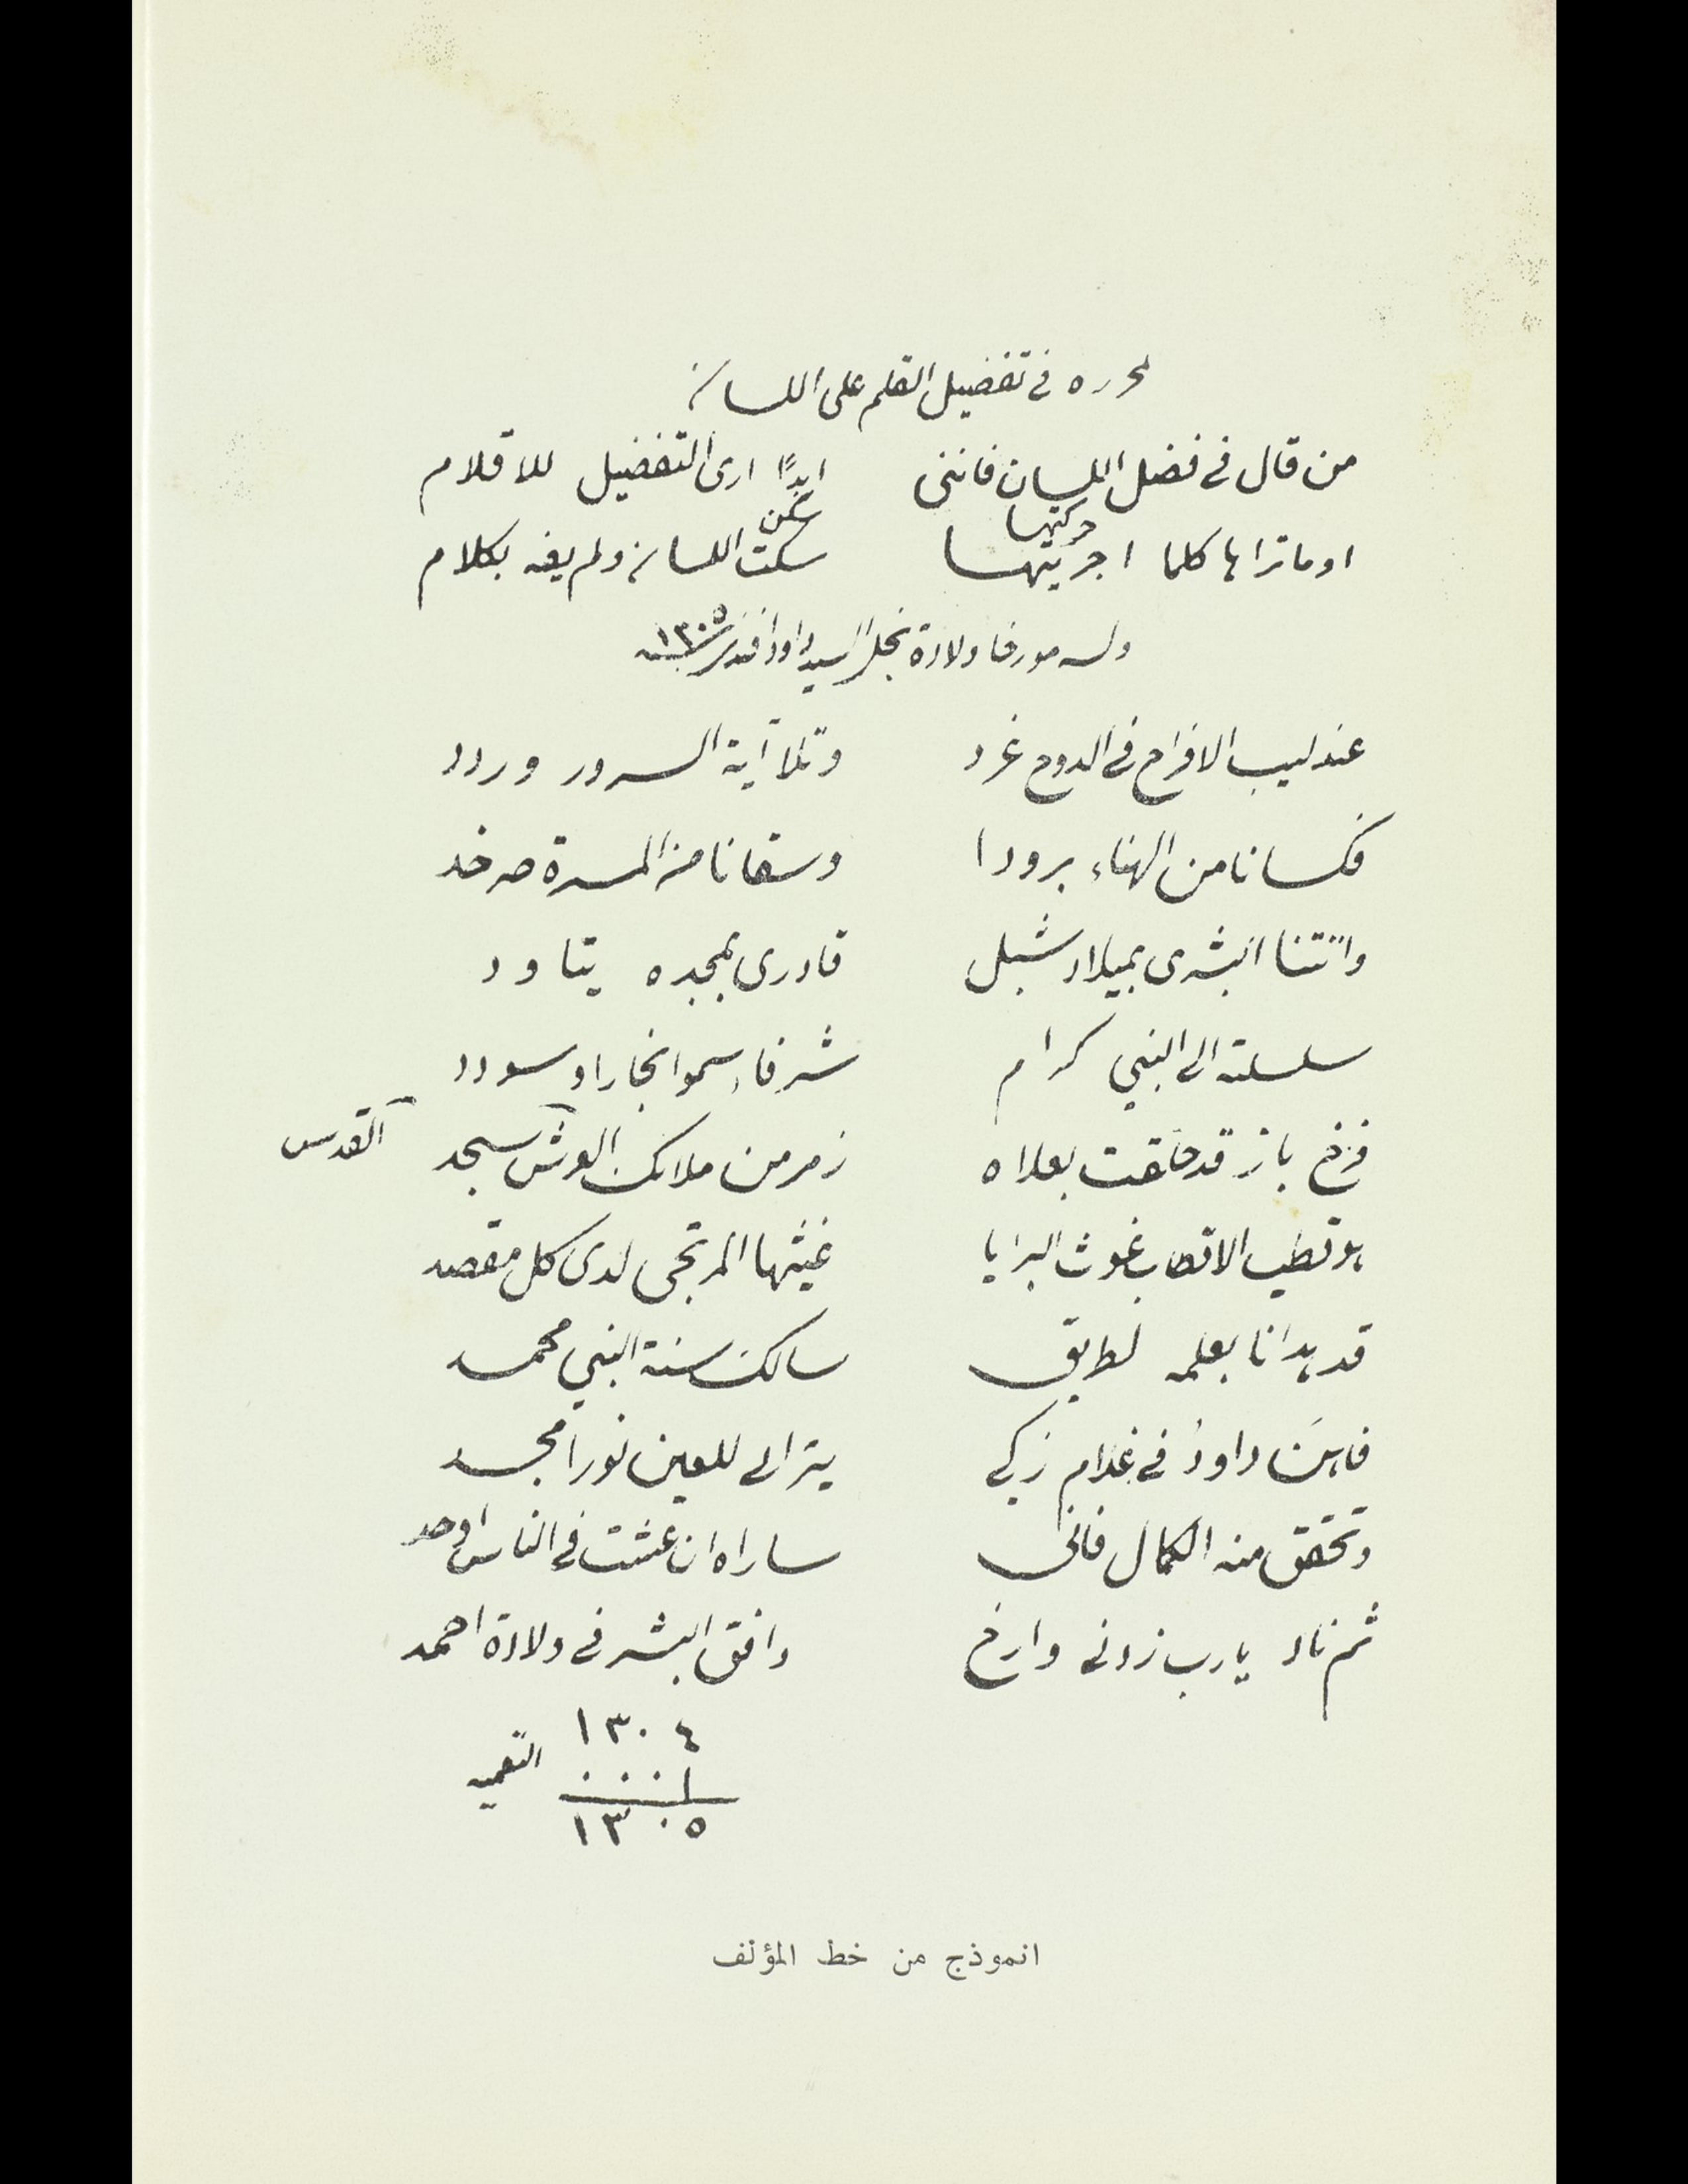 لمحرره في تفضيل القلم على اللسان
من قال في فضل اللسان فانني ابدًا ارى التفضيل للاقلام
حركتها عن
او ما تراها كلما اجريتها سكت اللسان ولم يفه بكلام
وله مورخا ولادة نجل السيد داود افندي سنة ١٣٠٥
عندليب الافراح في الدوح غرد وتلا آية السرور وردد
فكسانا من الهناء برودا وسقانا من المسرة صرخد
واتتنا البشرى بميلاد شبل قادري بمجده يتاود
سلسلته الى النبي كرام شرفاء سموا نجارا وسودد
فرخ باز قد حلقت بعلاه زمر من ملائك العرش سجد القدس
هو قطب الاقطاب غوث البرايا غيثها المرتجى لدى كل مقصد
قد هدانا بعلمه لطريق سالك سنة النبي محمد
فاهنَ داودُ في غلام زكي يتراى للعين نورا مجسد
وتحقق منه الكمال فاني ساراه ان عشت في الناس اوحد
ثم ناد يا رب زدني وارخ وافق البشر في ولادة احمد
١٣٠٤
٠٠٠١ التعميه
١٣٠٥
انموذج من خط المؤلف